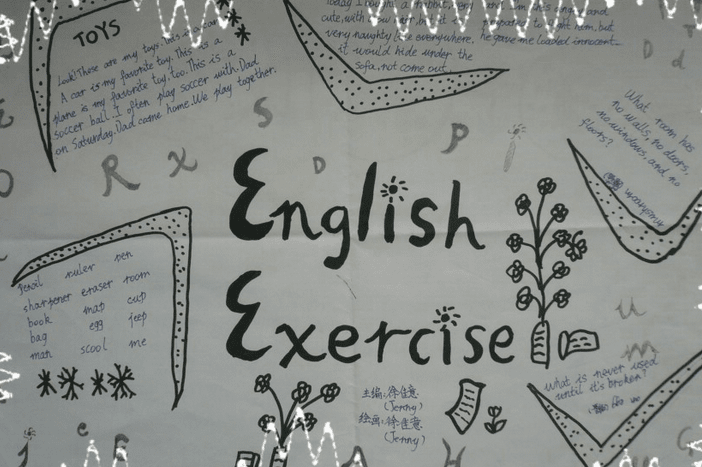 TOYS
Look! These are my toys. This is a car.
A car is my favorite toy. This is a
plane is my favorite toy, too. This is a
soccer ball. I often play soccer with Dad
on Saturday. Dad came home. We play together.
Today I bought a rabbit, very
cute, with
very naughty like everywhere.
it would hide under the
sofa, not come out.
he gave me loaded innocent
D d
S
R x D P
English
Exercise
What room has
no walls, no doors,
no windows, and no
floors?
pencil ruler pen
sharpener eraser room
book map cup
bag egg jeep
man scool me
u
m
主编:徐佳意
(Jenny)
绘画:徐佳意
(Jenny)
what is never used
until it's broken?
e
H
G